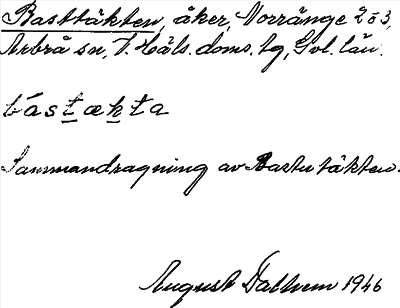 Basttäkten, åker, Norränge 2 o 3,
Arbrå sn, V. Häls. doms. tg, Gvl. län.
bástækta
Sammandragning av Bastutäkten.
August Dalhem 1946